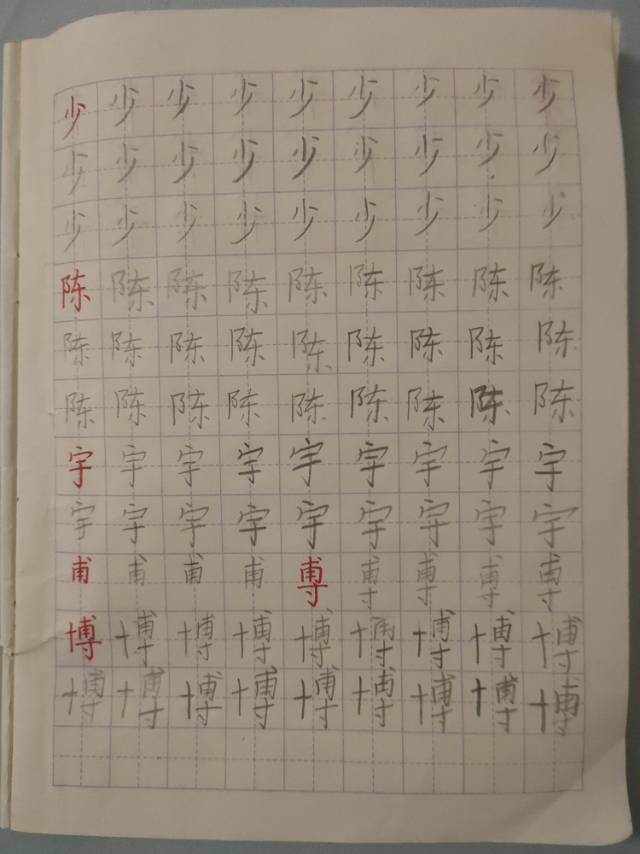 少少少少少少少少少
少少少少少少少少少
少少少少少少少少少
陈陈陈陈陈陈陈陈陈
陈陈陈陈陈陈陈陈陈
陈陈陈陈陈陈陈陈陈
宇宇宇宇宇宇宇宇宇
宇宇宇宇宇宇宇宇宇
甫甫甫甫尃尃尃尃尃
博博博博博博博博博
博博博博博博博博博